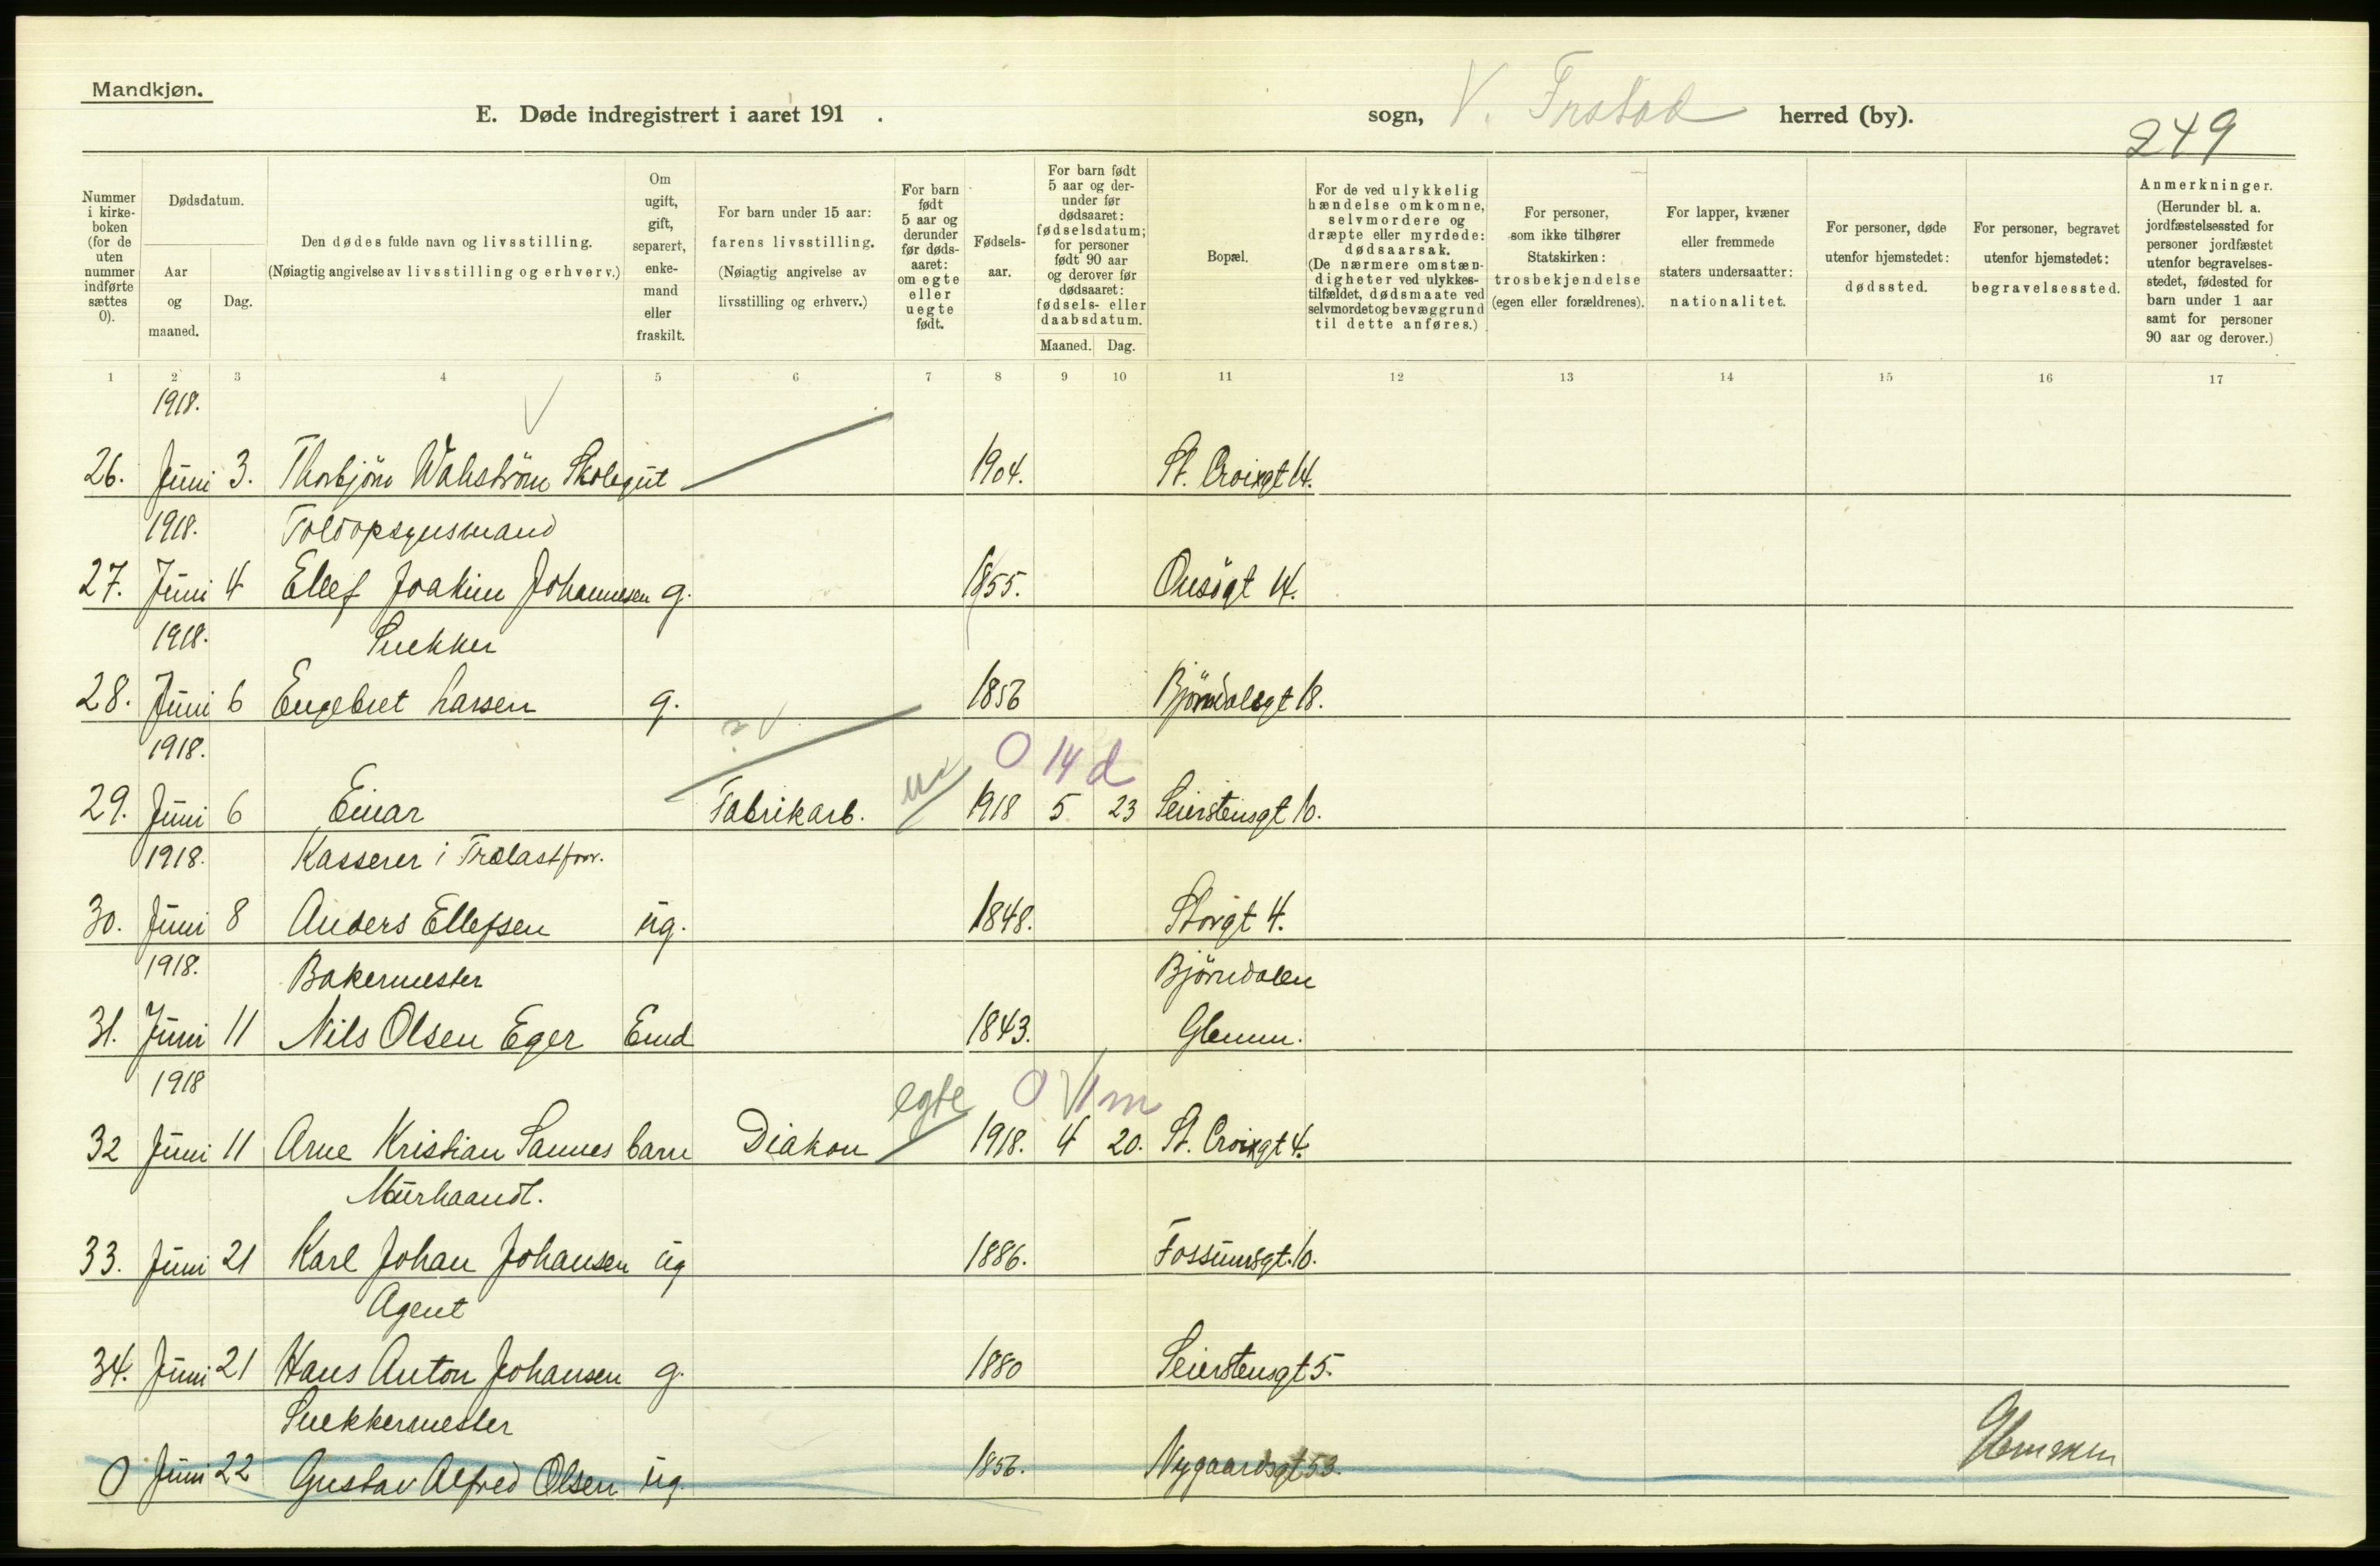 Mandkjøn.
E. Døde indregistrert i aaret 191 . sogn, V. Frstad herred (by).
249
Nummer i kirkeboken (for de uten nummer indførte sættes 0).
Dødsdatum.
Aar og maaned.
Dag.
Den dødes fulde navn og livsstilling.
(Nøiagtig angivelse av livsstilling og erhverv.)
Om ugift, gift, separert, enkemand eller fraskilt.
For barn under 15 aar: farens livsstilling. (Nøiagtig angivelse av livsstilling og erhverv.)
For barn født 5 aar og derunder før dødsaaret: om egte eller uegte født.
Fødselsaar.
For barn født 5 aar og derunder før dødsaaret: fødselsdatum; for personer født 90 aar og derover før dødsaaret: fødsels- eller daabsdatum.
Maaned. Dag.
Bopæl.
For de ved ulykkelig hændelse omkomne, selvmordere og dræpte eller myrdede: dødsaarsak. (De nærmere omstændigheter ved ulykkestilfældet, dødsmaate ved selvmordet og bevæggrund til dette anføres.)
For personer, som ikke tilhører Statskirken: trosbekjendelse (egen eller forældrenes).
For lapper, kvæner eller fremmede staters undersaatter: nationalitet.
For personer, døde utenfor hjemstedet: dødssted.
For personer, begravet utenfor hjemstedet: begravelsessted.
Anmerkninger. (Herunder bl. a. jordfæstelsessted for personer jordfæstet utenfor begravelsesstedet, fødested for barn under 1 aar samt for personer 90 aar og derover.)
1 2 3 4 5 6 7 8 9 10 11 12 13 14 15 16 17
1918.
26. Juni 3. Thorbjörn Wahström Skolegut 1904. St. Croixgt 14.
1918. Toldopsynsmand
27. Juni 4 Ellef Joakim Johannesen g. 1855. Onsögt 14.
1918. Snekker
28. Juni 6 Engebret Larsen g. 1856 Björndalsgt 18.
1918. 0 14 d
29. Juni 6 Einar Fabrikarb. 1918 5 23 Seierstensgt 10.
1918. Kasserer i Trælastforr.
30. Juni 8 Anders Ellefsen ug. 1848. Storgt 4.
1918. Bakermester Björndalen
31. Juni 11 Nils Olsen Eger Emd 1843. Glemm.
1918 egte 0 1 m
32 Juni 11 Arne Kristian Sannes barn Diakon 1918. 4 20. St. Croixgt 4.
Murhaandl.
33. Juni 21 Karl Johan Johansen ug 1886. Fossumsgt. 10.
Agent
34. Juni 21 Hans Anton Johansen g. 1880 Seierstensgt 5.
Snekkermester
0 Juni 22 Gustav Alfred Olsen ug. 1856. Nygaardsgt 53.